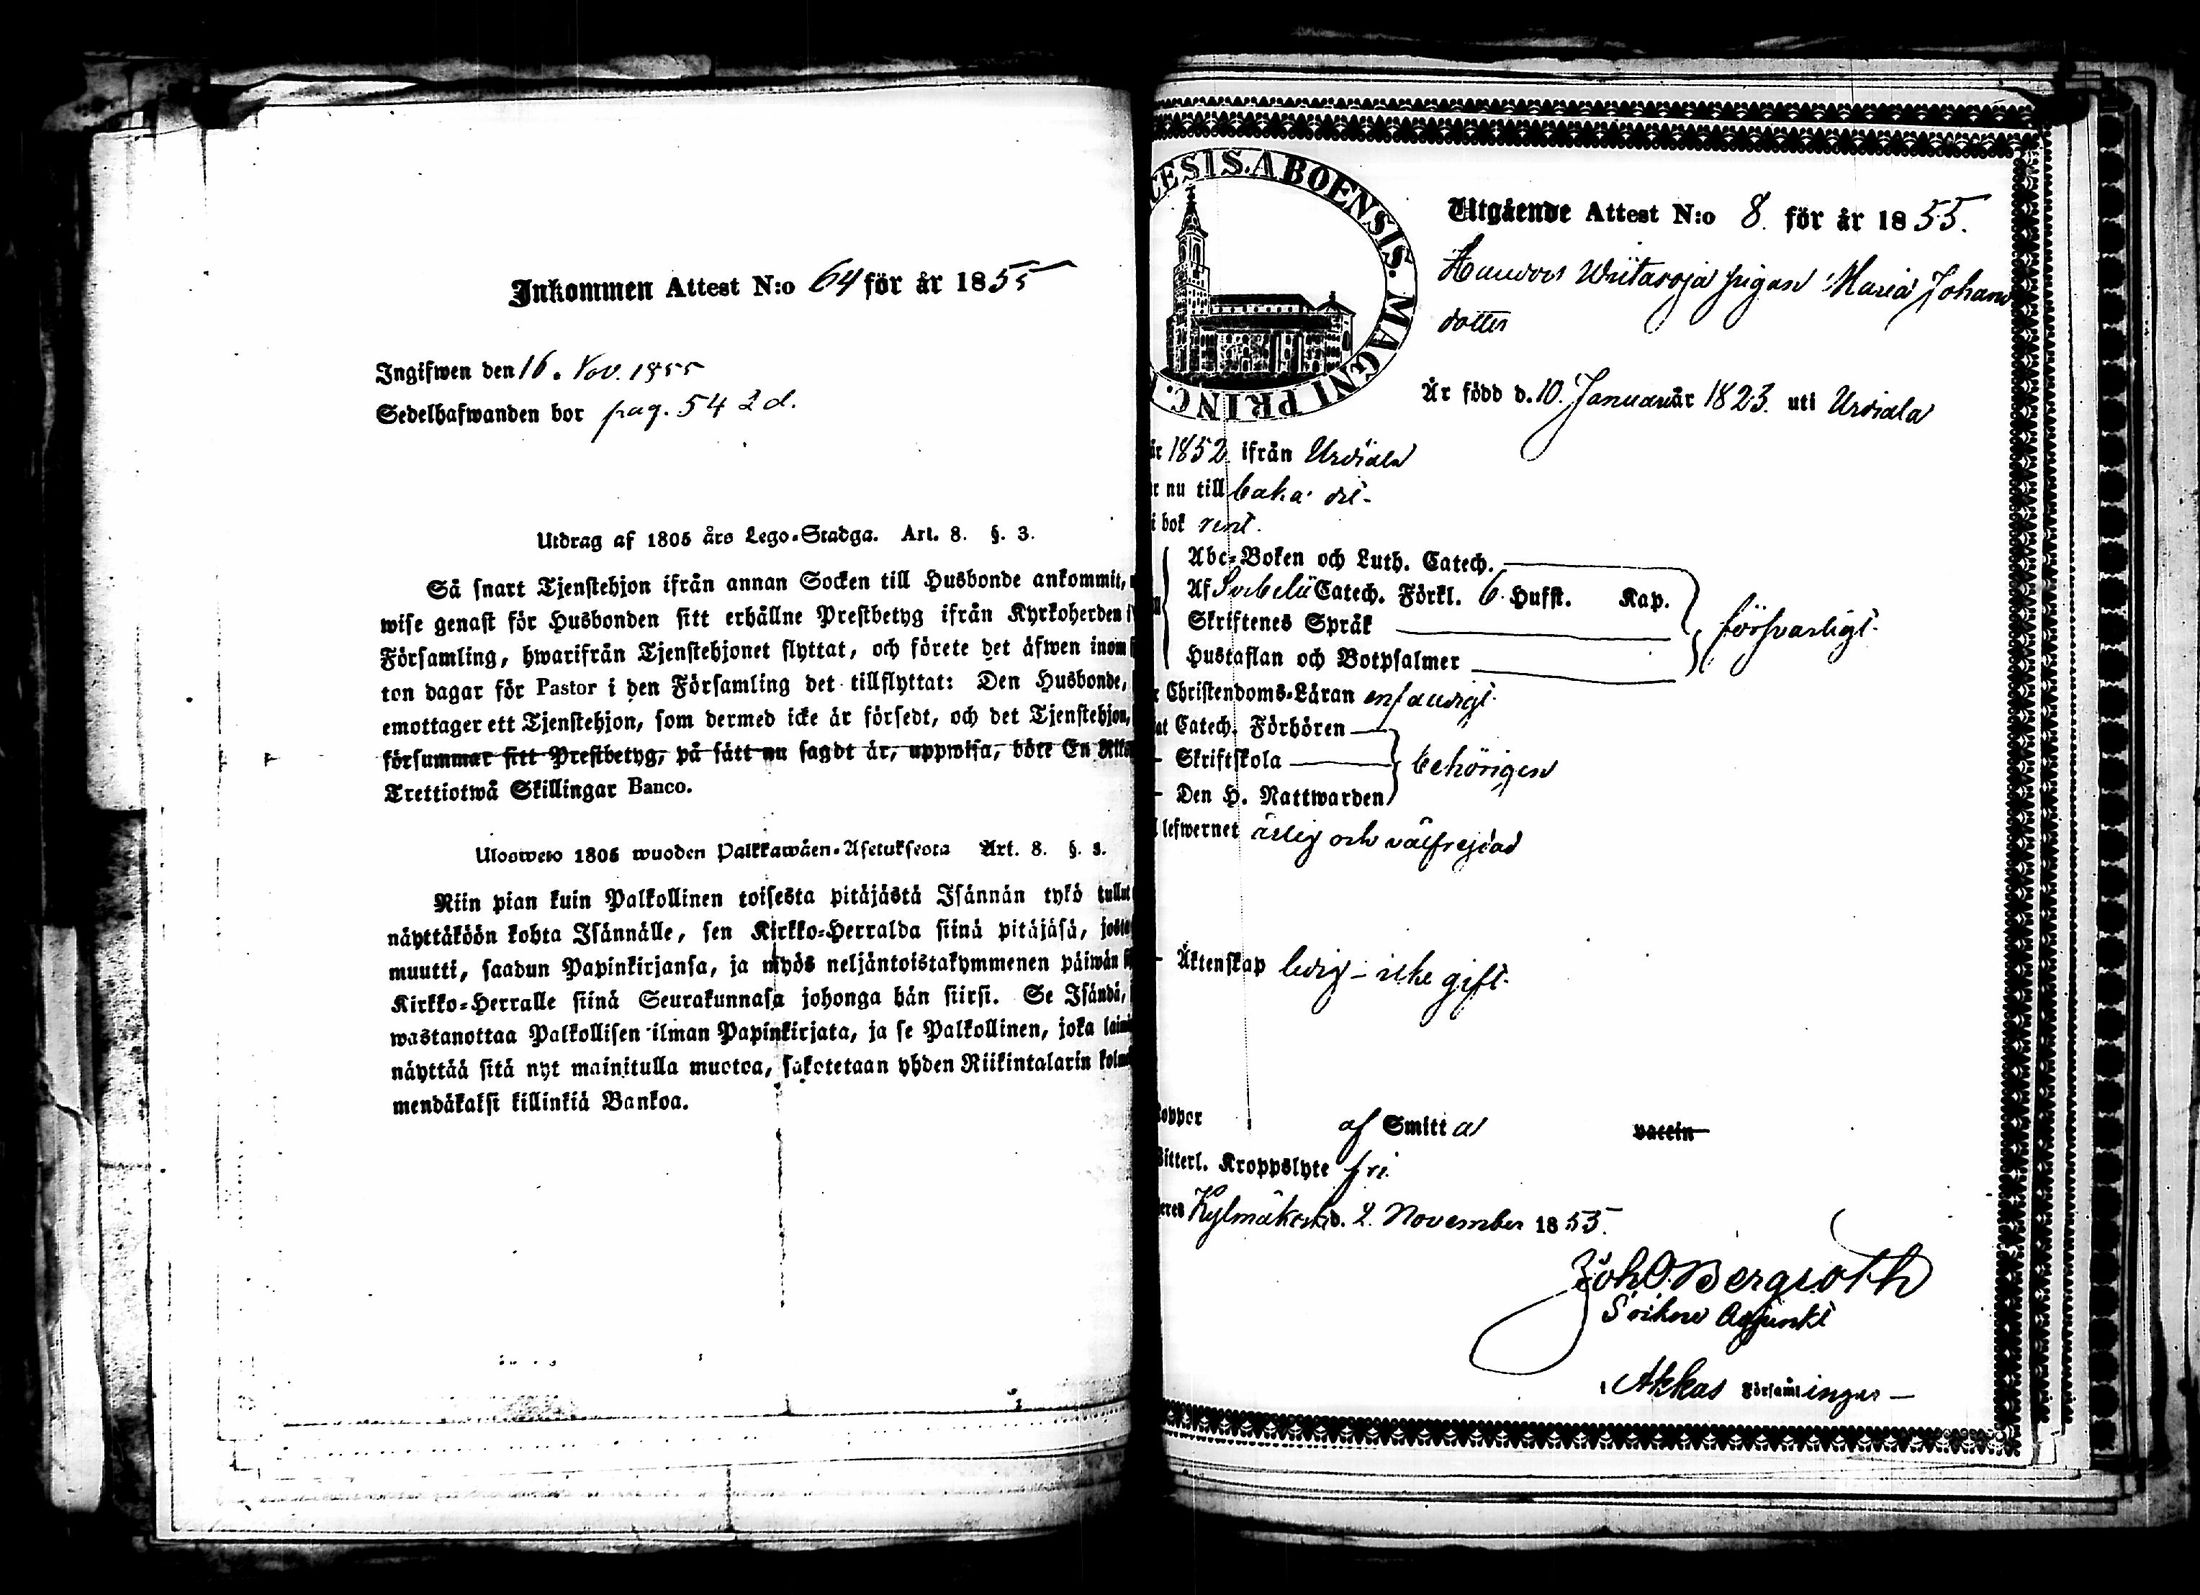 Inkommen Attest N:o 64 för år 1855
Ingifwen den 16. Nov. 1855
Sedelhafwanden bor pag. 542 d.
Utdrag af 1805 års Lego-Stadga. Art. 8. §. 3.
Så snart Tjenstehjon ifrån annan Socken till Husbonde ankommit,
wise genast för Husbonden sitt erhållne Prestbetyg ifrån Kyrkoherden
Församling, hwarifrån Tjenstehjonet flyttat, och förete det äfwen inom
ton dagar för Pastor i den Församling det tillflyttat: Den Husbonde,
emottager ett Tjenstehjon, som dermed icke är försedt, och det Tjenstehjon,
försummar sitt Prestbetyg, på sätt nu sagdt är, uppwisa, böte En
Trettiotwå Skillingar Banco.
Ulosweto 1805 wuoden Palkkawäen-Asetuksesta Art. 8. §. 3.
Niin pian kuin Palkollinen toisesta pitäjästä Isännän tykö tullut
näyttäköön kohta Isännälle, sen Kirkko-Herralda siinä pitäjäsä, josta
muutti, saadun Papinkirjansa, ja myös neljäntoistakymmenen päiwän
Kirkko-Herralle siinä Seurakunnasa johonga hän siirsi. Se Isändä,
wastanottaa Palkollisen ilman Papinkirjata, ja se Palkollinen, joka
näyttää sitä nyt mainitulla muotoa, sakotetaan yhden Riikintalarin
mendäkaksi killinkiä Bankoa.
CESIS. ABOENSIS. MAGNI PRINC.
Utgående Attest N:o 8. för år 1855.
Witaroja pigan Maria Johans
dotter
Är född d. 10. Januari år 1823. uti Urdiala
år 1852 ifrån Urdiala
nu till baka dit.
i bok rent.
Abc-Boken och Luth. Catech.
Af Svebelii Catech. Förkl. 6. Hufst. Kap.
Skriftenes Språk försvarligt.
Hustaflan och Botpsalmer
Christendoms-Läran enfaldigt.
Catech. Förhören
Skriftskola behörigen
Den H. Nattwarden
lefwernet ärlig och välfrejdad
Äktenskap ledig - icke gift.
koppor af Smitta vaccin
Witterl. Kroppslyte fri.
Kylmäkoski d. 2. November 1855.
Joh. O. Bergroth
Adjunkt
i Akkas Församlingar